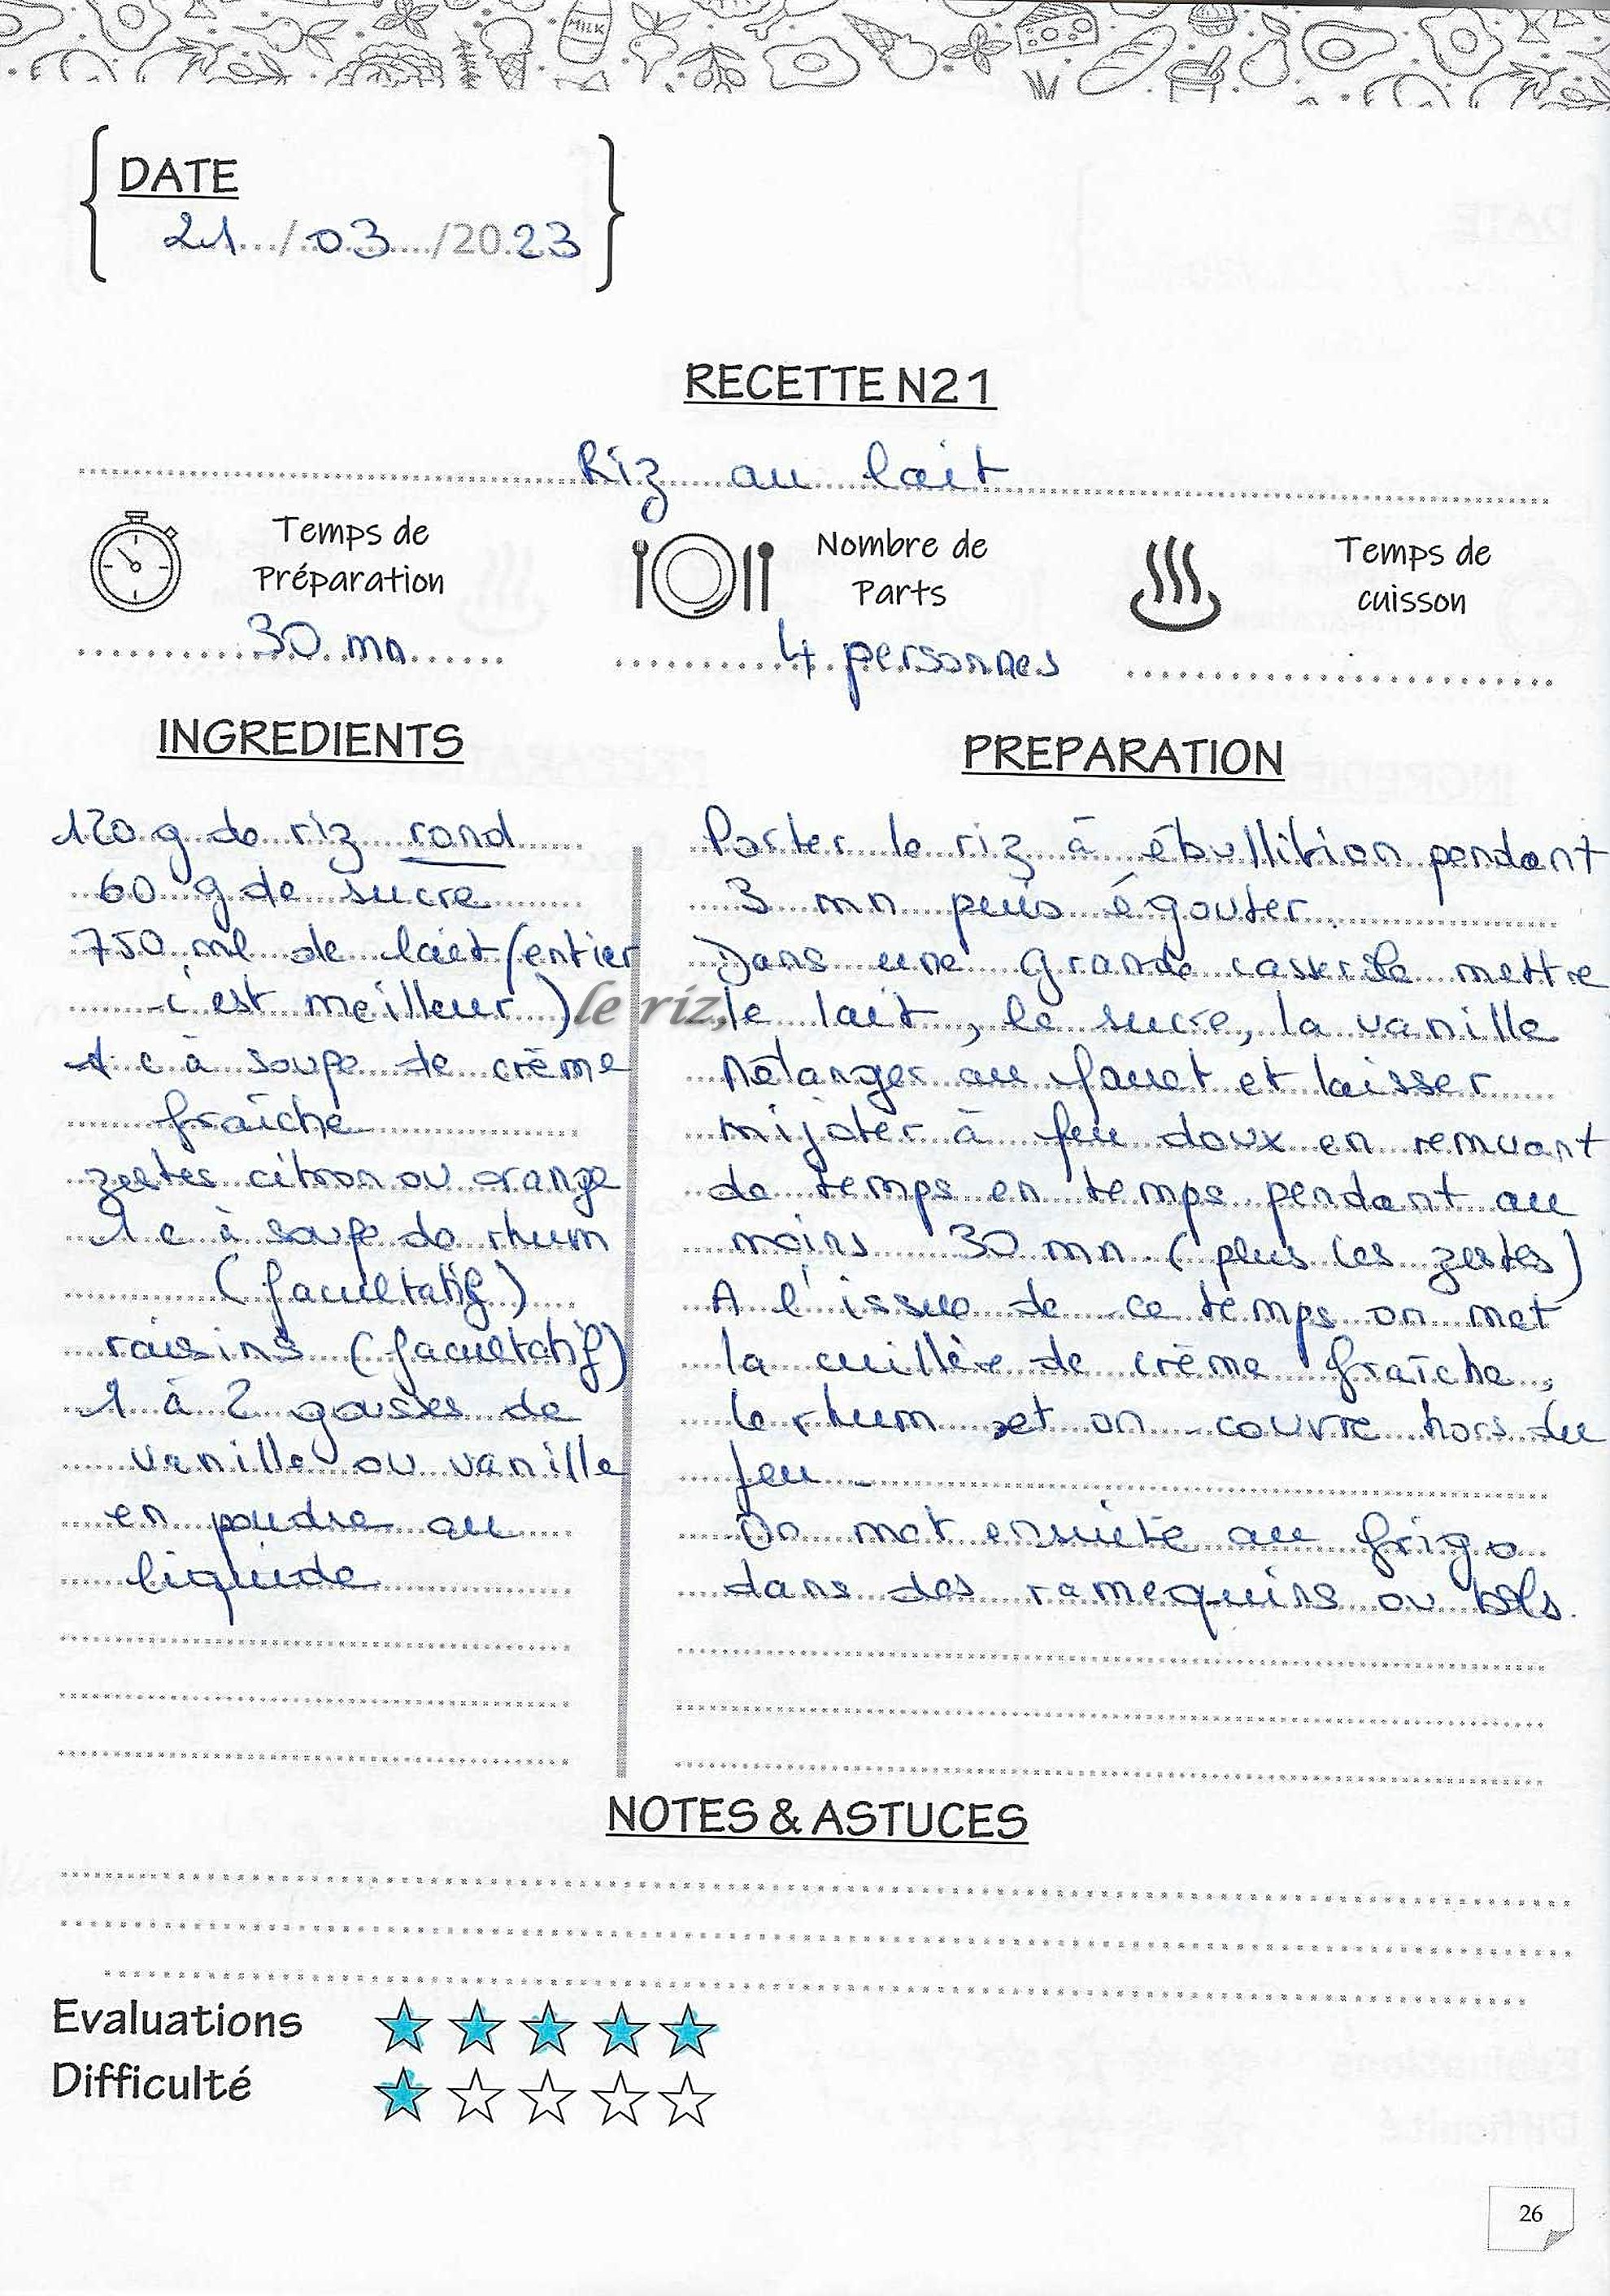 MILK
DATE
21.../.03.../20.23
RECETTE N21
Riz au lait
Temps de
Préparation
30 mn
Nombre de
Parts
4 personnes
Temps de
cuisson
INGREDIENTS
120 g de riz rond
60 g de sucre
750 ml de lait (entier
c'est meilleur)
1 c à soupe de crème
fraîche
zestes citron ou orange
1 c à soupe de rhum
(facultatif)
raisins (facultatif)
1 à 2 gousses de
vanille ou vanille
en poudre ou
liquide
PREPARATION
Porter le riz à ébullition pendant
3 mn puis égouter.
Dans une grande casserole mettre
le riz, le lait, le sucre, la vanille
Mélanger au fouet et laisser
mijoter à feu doux en remuant
de temps en temps pendant au
moins 30 mn. (plus les zestes)
A l'issue de ce temps on met
la cuillère de crème fraîche,
le rhum et on couvre hors du
feu.
On met ensuite au frigo
dans des ramequins ou bols.
NOTES & ASTUCES
Evaluations
Difficulté
26